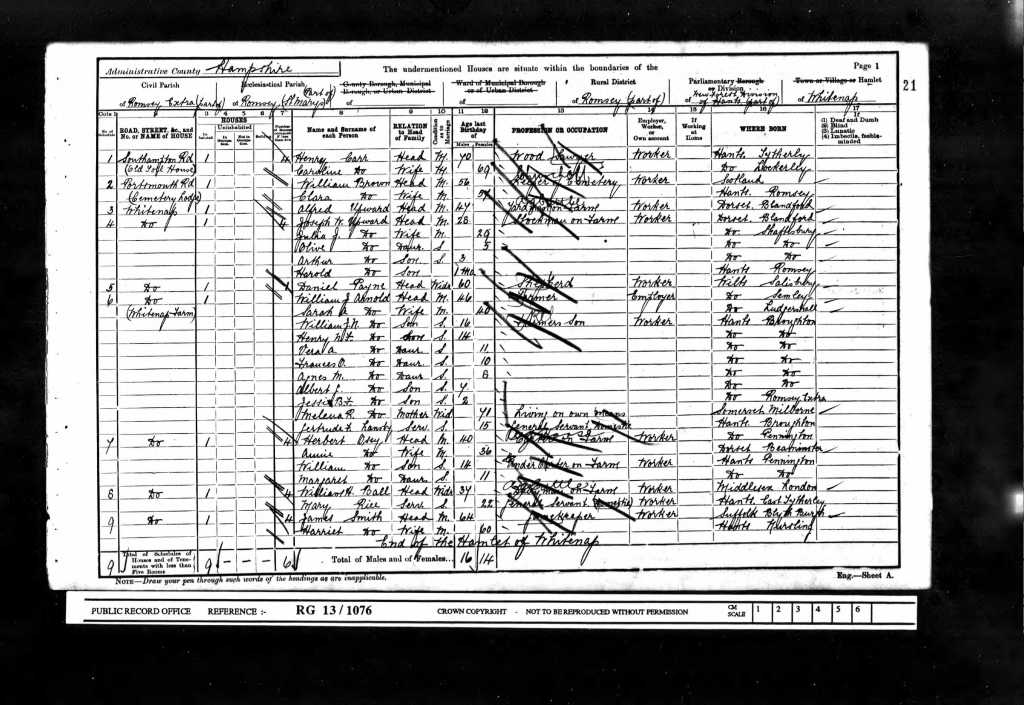 Administrative County Hampshire
The undermentioned Houses are situate within the boundaries of the
Page 1
21
Civil Parish Ecclesiastical Parish County Borough, Municipal Borough, or Urban District Ward of Municipal Borough or of Urban District Rural District Parliamentary Borough or Division Town or Village or Hamlet
of Romsey Extra (part of) of Romsey (St Mary) Part of of of of Romsey (part of) New Forest Division of Hants (part of) of Whitenap
HOUSES
No. of Schedule ROAD, STREET, &c., and No. or NAME of HOUSE Inhabited Uninhabited Name and Surname of each Person RELATION to Head of Family Condition as to Marriage Age last Birthday of Males Females PROFESSION OR OCCUPATION Employer, Worker, or Own account If Working at Home WHERE BORN (1) Deaf and Dumb (2) Blind (3) Lunatic (4) Imbecile, feeble-minded
1 Southampton Rd 1 4 Henry Carr Head M 70 Wood Sawyer Worker Hants Tytherley
(Old Toll House) Caroline Do Wife M 69 Do Lockerley
2 Portsmouth Rd 1 William Brown Head M 56 Keeper of Cemetery Worker Scotland
(Cemetery Lodge) Clara Do Wife M Hants Romsey
3 Whitenap 1 Alfred Upward Head M 47 on Farm Worker Dorset Blandford
4 Do 1 4 Joseph W. Upward Head M 28 Stockman on Farm Worker Dorset Blandford
Julia J. Do Wife M 29 Do Shaftesbury
Olive Do Daur S 5 Do Do
Arthur Do Son S 3 Do Do
Harold Do Son 1 mo Hants Romsey
5 Do 1 Daniel Payne Head Widr 60 Shepherd Worker Wilts Salisbury
6 Do 1 William J Arnold Head M 46 Farmer Employer Do Semley
(Whitenap Farm) Sarah A Do Wife M 40 Do Ludgershall
William J.N. Do Son S 16 Farmers Son Worker Hants Broughton
Henry Do Son S 14 Do Do
Vera A. Do Daur S 11 Do Do
Frances O. Do Daur S 10 Do Do
Agnes M. Do Daur S 8 Do Do
Albert J. Do Son S 4 Do Do
Jessie Do Son S 2 Do Romsey Extra
R. Do Mother Wid 71 Living on own means Somerset Milborne
Gertrude Serv S 15 General Servant Domestic Hants Broughton
7 Do 1 4 Herbert Head M 40 on Farm Worker Do Pennington
Annie Do Wife M 36 Dorset Beaminster
William Do Son S 14 Under on Farm Worker Hants Pennington
Margaret Do Daur S 11 Do Do
8 Do 1 4 William H. Ball Head Widr 37 on Farm Worker Middlesex London
Mary Rice Serv S 22 General Servant (Domestic) Worker Hants East Tytherley
9 Do 1 4 James Smith Head M 64 Gamekeeper Worker Suffolk Blythburgh
Harriet Do Wife M 60 Hants Nursling
End of the Hamlet of Whitenap
9 Total of Schedules of Houses and of Tenements with less than Five Rooms 9 6 Total of Males and Females... 16 14
NOTE—Draw your pen through such words of the headings as are inapplicable.
Eng.—Sheet A.
PUBLIC RECORD OFFICE REFERENCE :- RG 13/1076 CROWN COPYRIGHT - NOT TO BE REPRODUCED WITHOUT PERMISSION CM SCALE 1 2 3 4 5 6